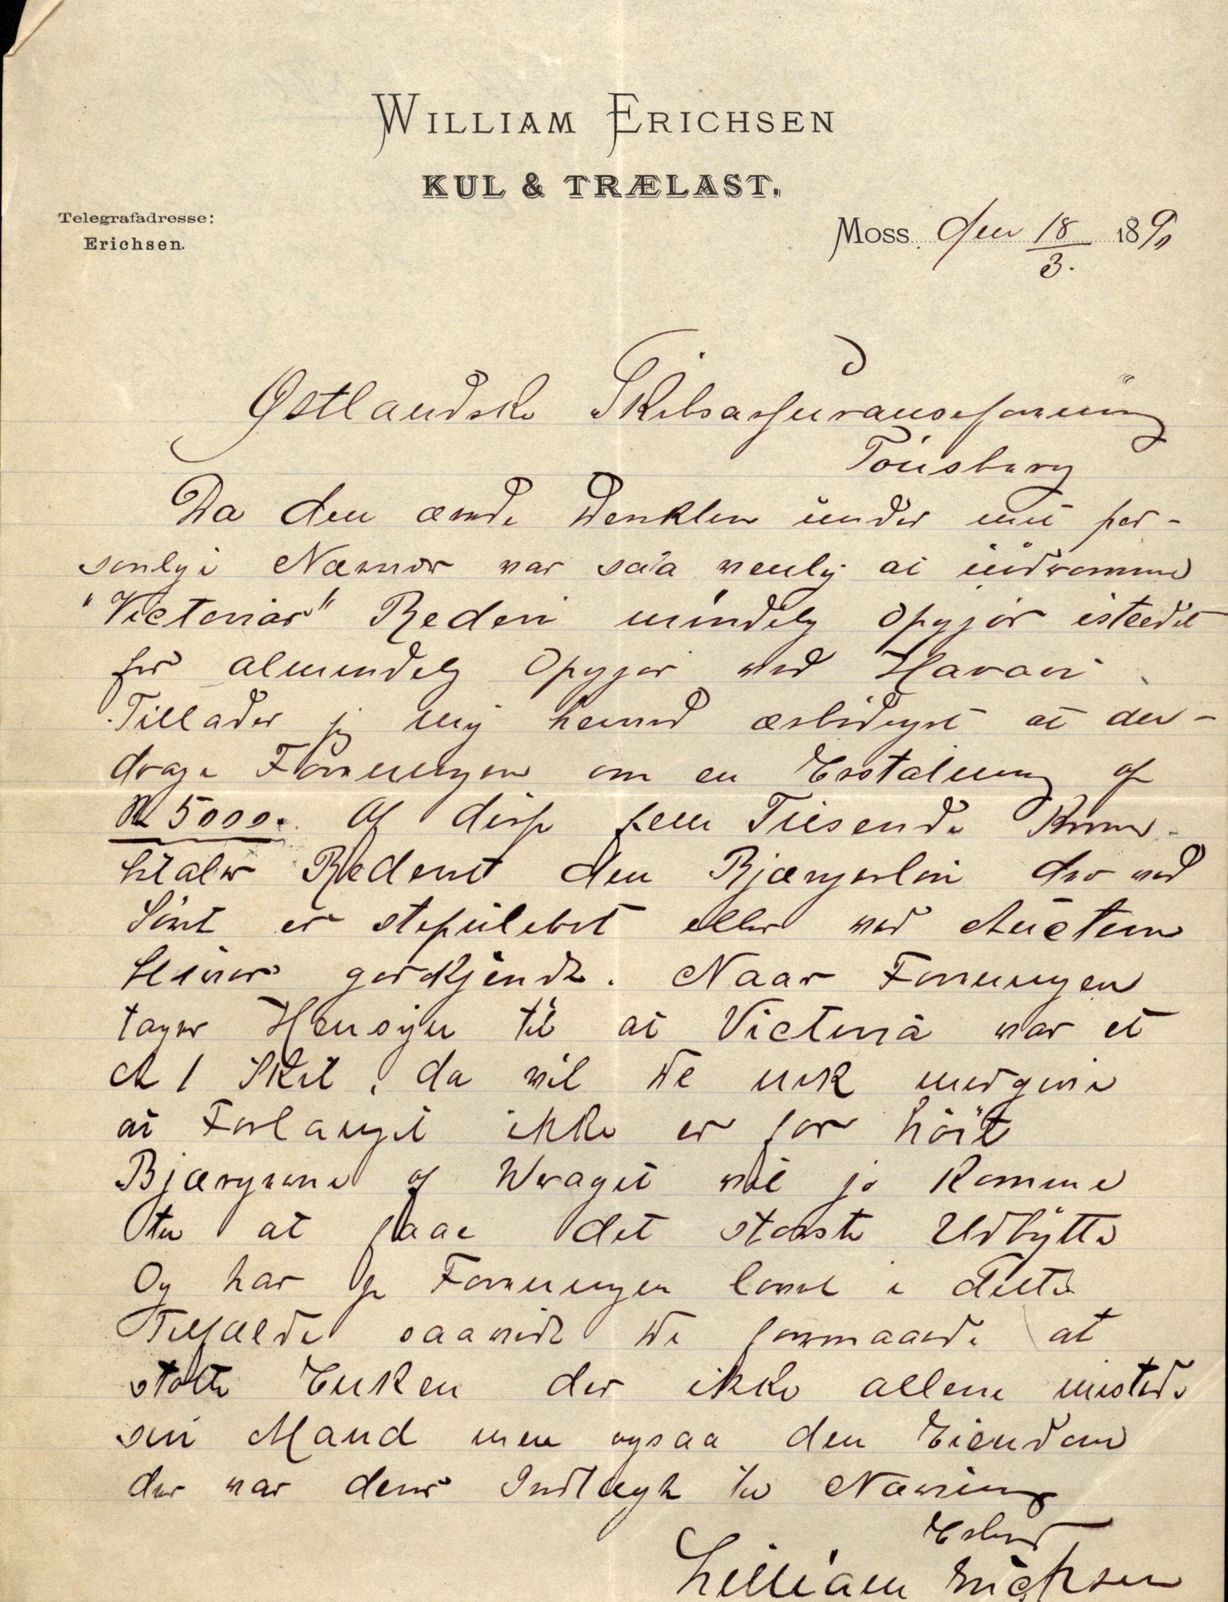 WILLIAM ERICHSEN
KUL & TRÆLAST.
Telegrafadresse:
Erichsen.
Moss. den 18/3. 1890
Østlandske Skibsassuranceforening
Tönsberg
Da den ærede under mit per-
sonlige Nærvær var saa venlig at indrømme
"Victorias" Rederi mindelig Opgjör istedet
for almindelig Opgjør ved Havari
Tillader jeg mig herved ærbødigst at
drage Foreningen om en Erstatning af
Kr 5000. Af disse fem Tusende Kroner
Rederiet den Bjærgerlön der ved
er eller ved Auctions
godkjendt. Naar Foreningen
tager Hensyn til at Victoria var et
A 1 Skib, da vil De nok medgive
at Forlanget ikke er for höit
Bjærgerne af Vraget vil jo komme
til at faae det største Udbytte
Og har jo Foreningen lovet i dette
Tilfælde saavidt De formaaede at
støtte Enken der ikke allene mistede
sin Mand men ogsaa den Eiendom
der var dens Indtægt til Næring
Erbød
William Erichsen